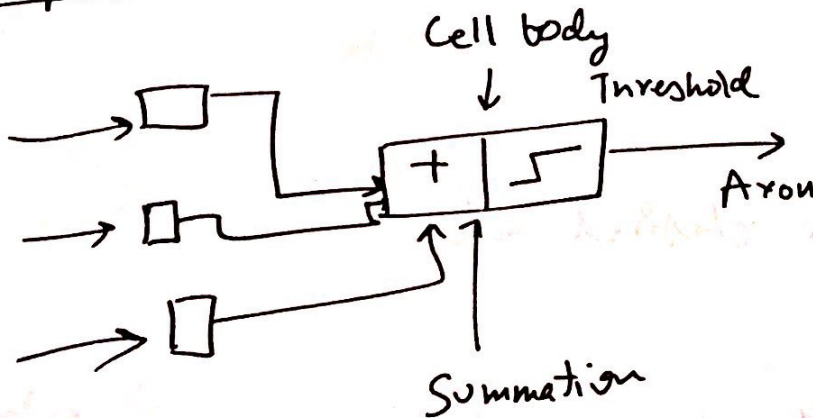 Cell body
Threshold
+
Axon
Summation